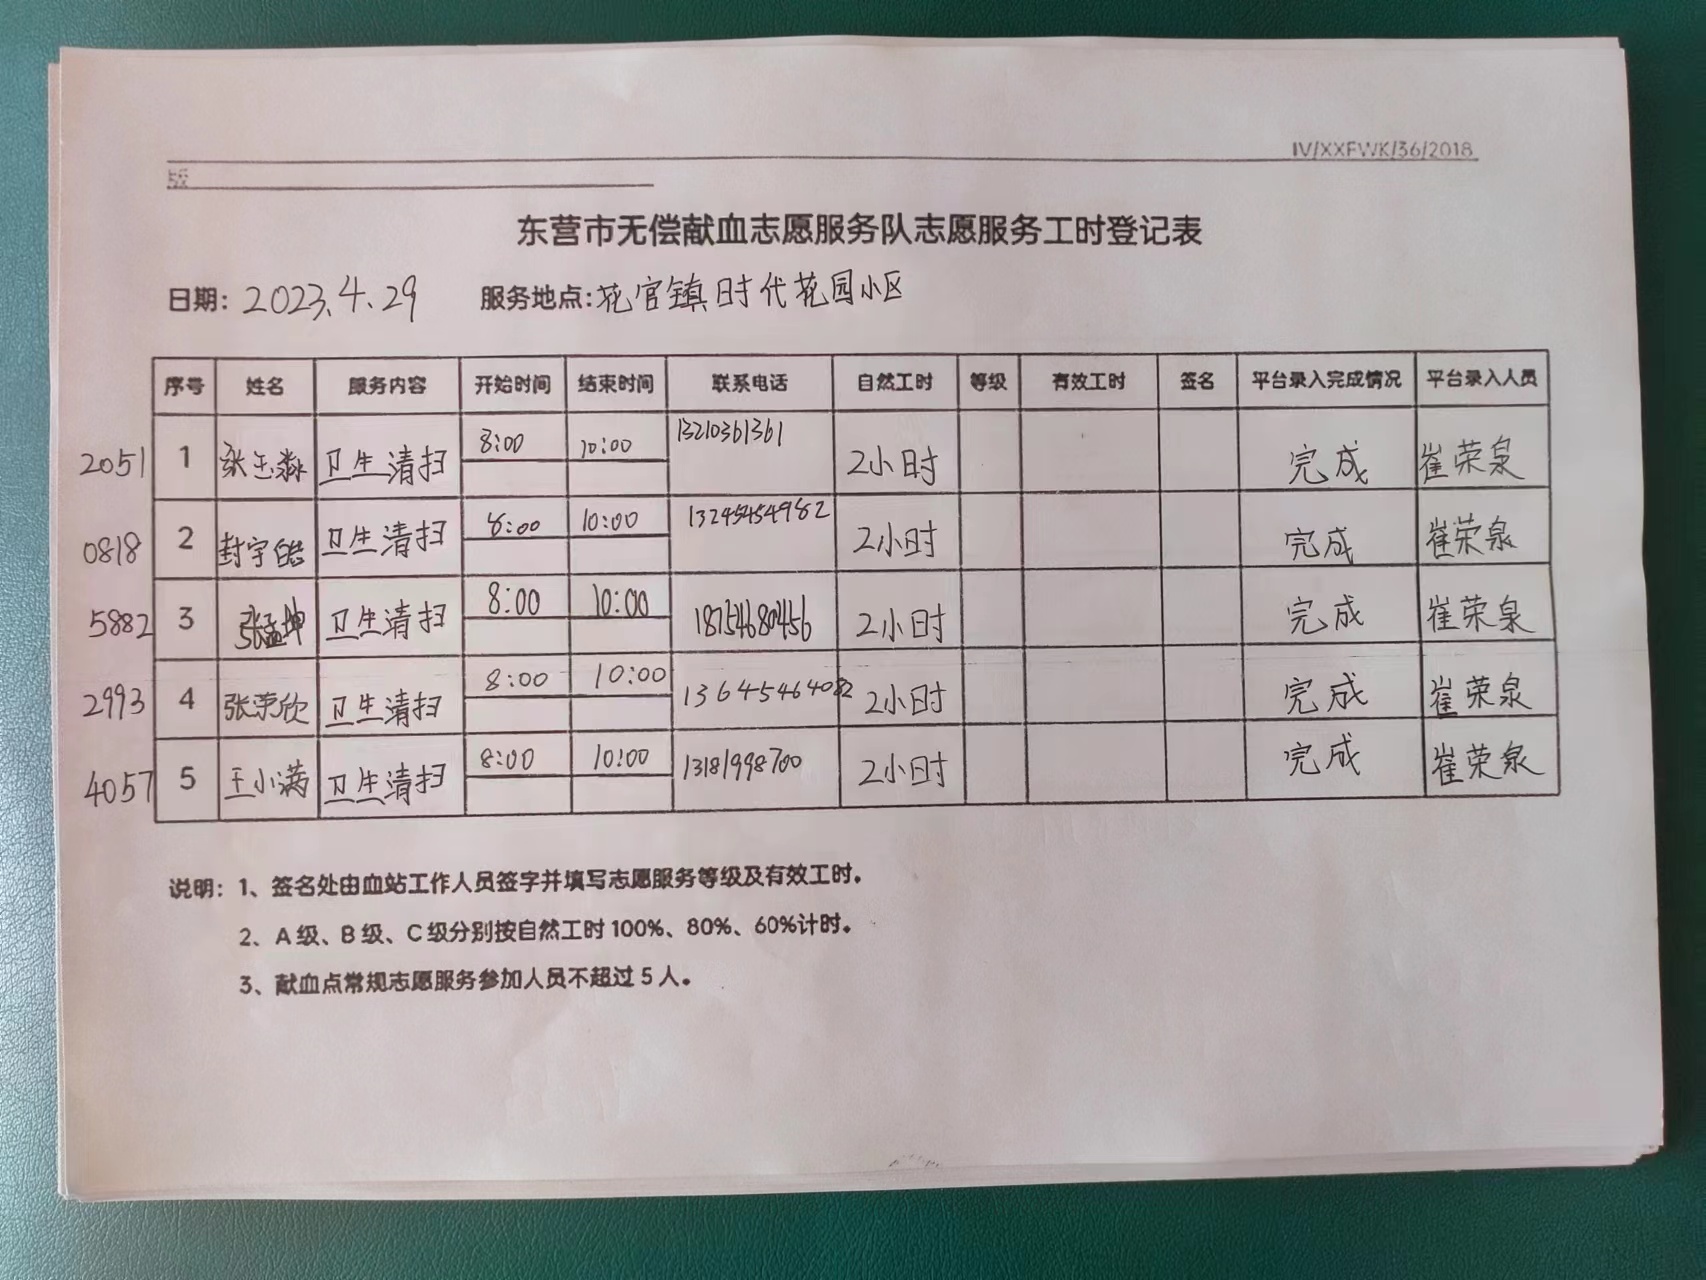 IV/XXFWK/36/2018
版
东营市无偿献血志愿服务队志愿服务工时登记表
日期：2023.4.29 服务地点：花官镇时代花园小区
序号 姓名 服务内容 开始时间 结束时间 联系电话 自然工时 等级 有效工时 签名 平台录入完成情况 平台录入人员
2051 1 张玉淼 卫生清扫 8:00 10:00 13210361361 2小时 完成 崔荣泉
0818 2 封宇皓 卫生清扫 8:00 10:00 2小时 完成 崔荣泉
5882 3 张孟坤 卫生清扫 8:00 10:00 18754680456 2小时 完成 崔荣泉
2993 4 张荣欣 卫生清扫 8:00 10:00 13645464082 2小时 完成 崔荣泉
4057 5 王小满 卫生清扫 8:00 10:00 13181998700 2小时 完成 崔荣泉
说明：1、签名处由血站工作人员签字并填写志愿服务等级及有效工时。
2、A级、B级、C级分别按自然工时100%、80%、60%计时。
3、献血点常规志愿服务参加人员不超过5人。